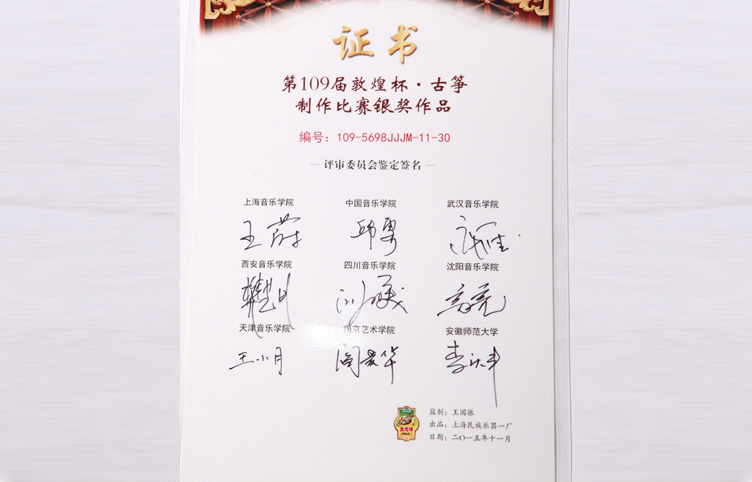 证书
第109届敦煌杯·古筝
制作比赛银奖作品
编号：109-5698JJJM-11-30
评审委员会鉴定签名
上海音乐学院 中国音乐学院 武汉音乐学院
王蔚
西安音乐学院 四川音乐学院 沈阳音乐学院
天津音乐学院 南京艺术学院 安徽师范大学
王小月 阎爱华 李庆丰
监制：王国振
出品：上海民族乐器一厂
日期：二〇一五年十一月